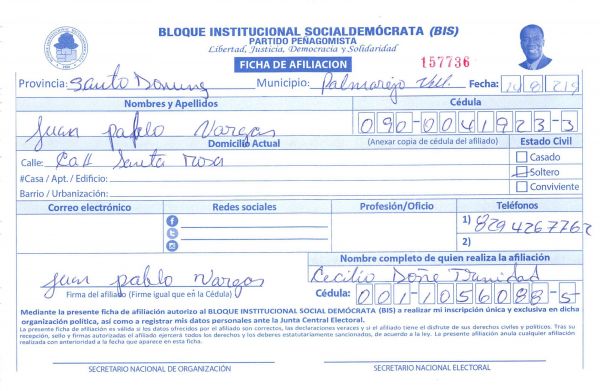 BLOQUE INSTITUCIONAL SOCIALDEMÓCRATA (BIS)
PARTIDO PEÑAGOMISTA
Libertad, Justicia, Democracia y Solidaridad
FICHA DE AFILIACION
157736
Provincia: Santo Doming Municipio: Palmarejo Vill. Fecha:
Nombres y Apellidos Cédula
Juan pablo Vargas 090-0041923-3
Domicilio Actual (Anexar copia de cédula del afiliado) Estado Civil
Calle: Call Santa rosa Casado
#Casa / Apt. / Edificio: Soltero
Barrio / Urbanización: Conviviente
Correo electrónico Redes sociales Profesión/Oficio Teléfonos
1) 8294267762
2)
Nombre completo de quien realiza la afiliación
Juan pablo Vargas Cecilio Doñe Trinidad
Firma del afiliado (Firme igual que en la Cédula) Cédula: 001-1056088-5
Mediante la presente ficha de afiliación autorizo al BLOQUE INSTITUCIONAL SOCIAL DEMÓCRATA (BIS) a realizar mi inscripción única y exclusiva en dicha
organización política, así como a registrar mis datos personales ante la Junta Central Electoral.
La presente ficha de afiliación es válida si los datos ofrecidos por el afiliado son correctos, las declaraciones veraces y si el afiliado tiene el disfrute de sus derechos civiles y políticos. Tras su
recepción, sello y firmas autorizadas el afiliado ejercerá todos los derechos y los deberes estatutariamente sancionados, de acuerdo a la ley. La presente afiliación anula cualquier afiliación
realizada con anterioridad a la fecha que aparece en esta ficha.
SECRETARIO NACIONAL DE ORGANIZACIÓN SECRETARIO NACIONAL ELECTORAL